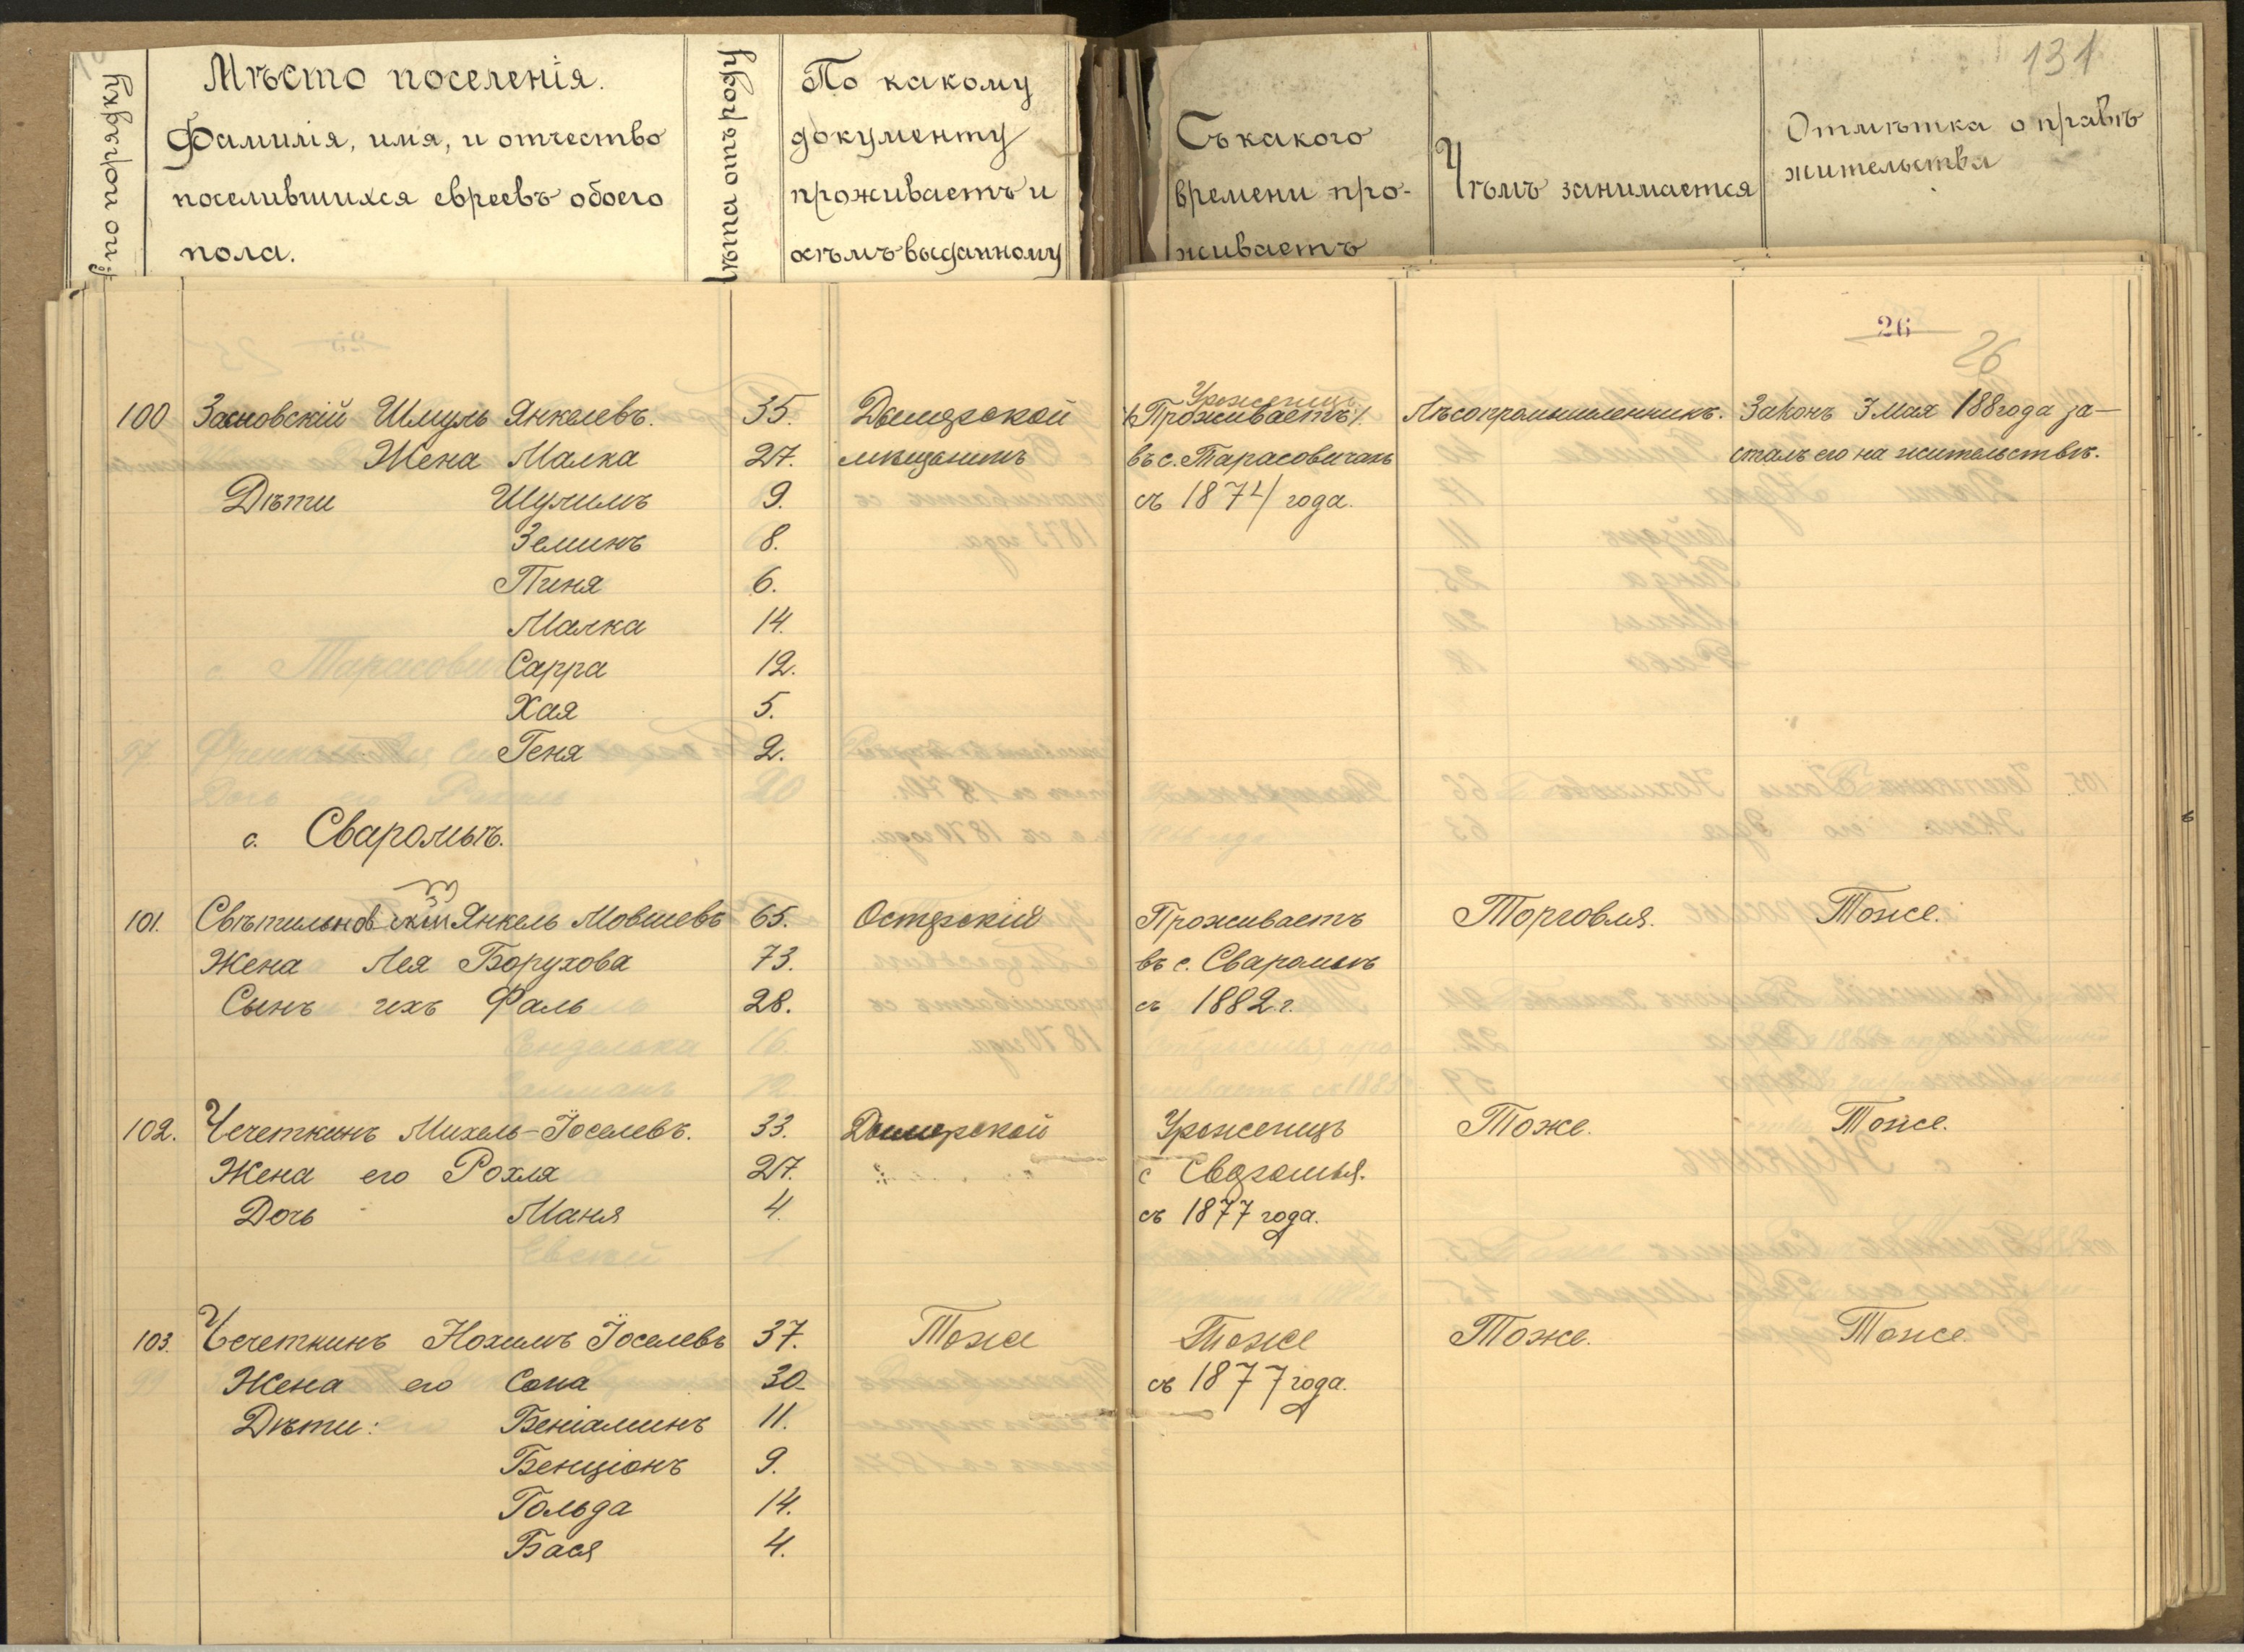 № по порядку
Мѣсто поселенія.
Фамилія, имя, и отчество
поселившихся евреевъ обоего
пола.
Лѣта отъ роду
По какому
документу
проживаетъ и
кѣмъ выданному
Съ какого
времени про-
живаетъ
Чѣмъ занимается
131
Отмѣтка о правѣ
жительства
26
26
100 Засновскій Шмуль Янкелевъ. 35. Дымерской Проживаетъ Лѣсопромышленникъ. Законъ 3 мая 188 года за-
Уроженецъ
Жена Малка 27. мѣщанинъ въ с. Тарасовичахъ сталъ его на жительствѣ.
Дѣти Шулимъ 9. съ 1874 года.
Земинъ 8.
Пиня 6.
Малка 14.
Сарра 12.
Хая 5.
Геня 2.
с. Сваромъѣ.
101. Свѣтильновскій Янкель Мовшевъ 65. Остерскій Проживаетъ Торговля. Тоже.
Жена Лея Борухова 73. въ с. Сваромьѣ
Сынъ ихъ Фаль 28. съ 1882 г.
102. Чечеткинъ Михель-Іоселевъ. 33. Дымерской Уроженецъ Тоже. Тоже.
Жена его Рохля 27. с Сваромья.
Дочь Маня 4. съ 1877 года.
103. Чечеткинъ Нохимъ Іоселевъ 37. Тоже Тоже Тоже. Тоже.
Жена его Сона 30. съ 1877 года.
Дѣти: Беніаминъ 11.
Бенціонъ 9.
Гольда 14.
Бася 4.